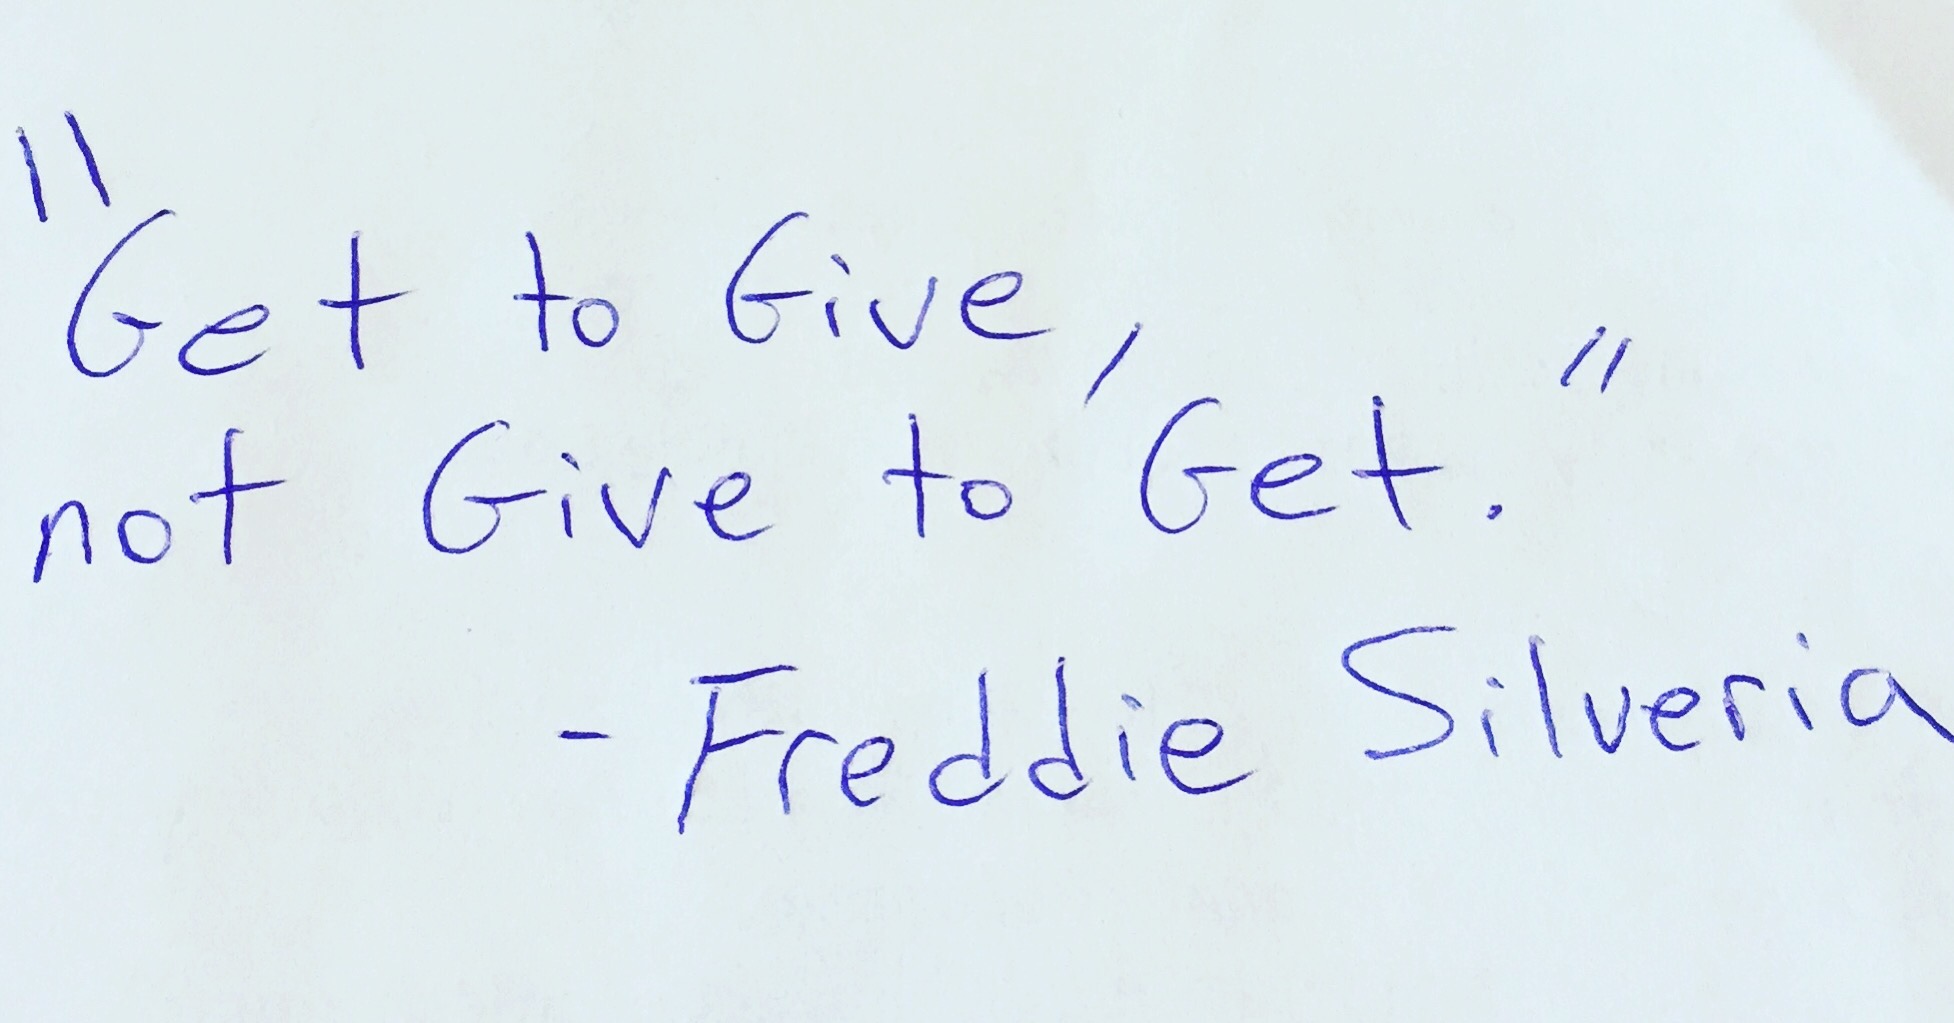 "Get to Give,
not Give to Get."
- Freddie Silveria